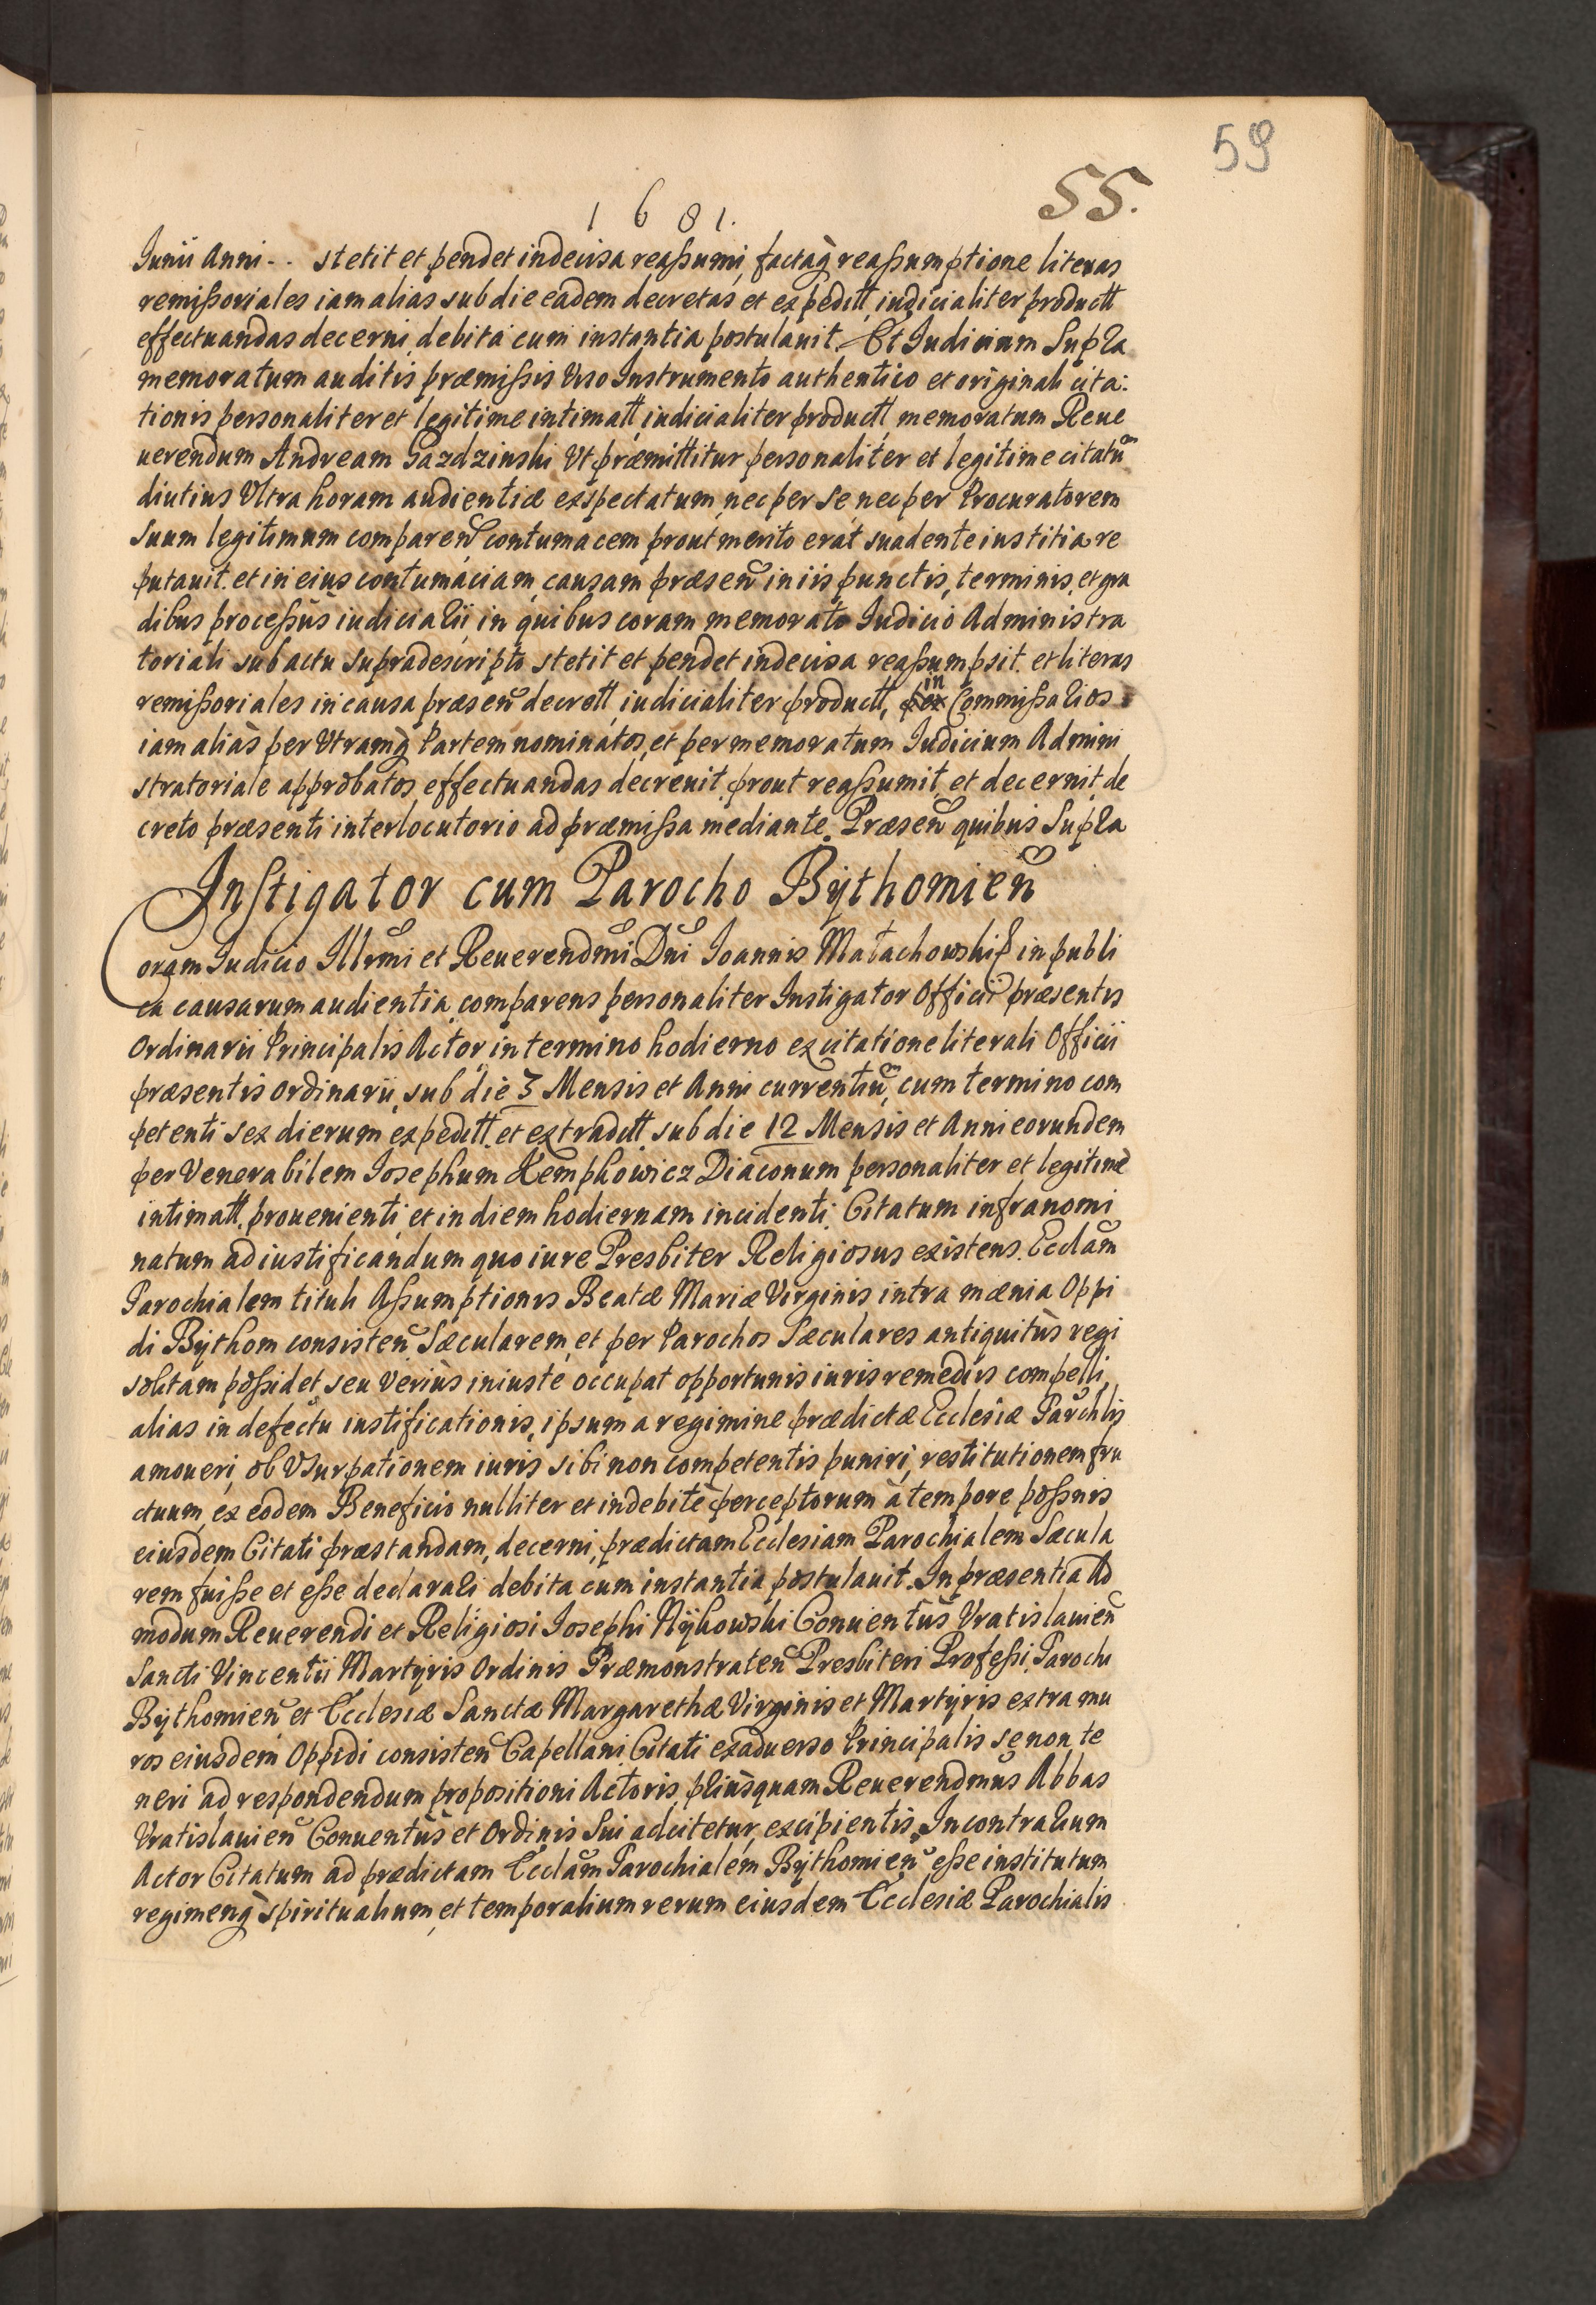 59
55.
1 6 8 1.
Iunii Anni - - stetit et pendet indecisa reaßumi, factaq̀ reaßumptione literas
remißoriales iam alias sub die eadem decretas, et expeditt, iudicialiter productt
effectuandas decerni, debita cum instantia postulauit. Et Iudicium Supra
memoratum auditis præmißis Viso Instrumento authentico et originali cita:
tionis personaliter et legitime intimatt, iudicialiter productt, memoratum Reue
uerendum Andream Gazdzinski Vt præmittitur personaliter et legitime citatũ
diutius Vltra horam audientiæ exspectatum, nec per se, nec per Procuratorem
suum legitimum comparen̄ contumacem prout merito erat suadente iustitia re
putauit. et in eius contumaciam, causam præsen̄ in iis punctis, terminis, et gra
dibus proceßus iudicialii, in quibus coram memorato Iudicio Administra
toriali sub actu supradescripto stetit et pendet indecisa reaßumpsit. et literas
remißoriales in causa præsen̄ decrett, iudicialiter productt, per in Commißarios
iam alias per Vtramq̀ Partem nominatos, et per memoratum Iudicium Admini
stratoriale approbatos, effectuandas decreuit. prout reaßumit, et decernit, de
creto præsenti interlocutorio ad præmißa mediante. Præsen̄ quibus Supra
Instigator cum Parocho Bÿthomien̄
Coram Iudicio Illrm̄i et Reuerendm̄i Dn̄i Ioannis Małachowski ꝑ in publi
ca causarum audientia, comparens personaliter Instigator Officii præsentis
Ordinarii Principalis Actor, in termino hodierno ex citatione literali Officii
præsentis ordinarii, sub die 3 Mensis et Anni currentiũ, cum termino com
petenti sex dierum expeditt. et extraditt. sub die 12 Mensis et Anni eorundem
per Venerabilem Iosephum Kempkowicz Diaconum personaliter et legitimè
intimatt, prouenienti, et in diem hodiernam incidenti. Citatum infranomi
natum ad iustificandum quo iure Presbiter Religiosus existens. Eccl̄am
Parochialem tituli Aßumptionis Beatæ Mariæ Virginis intra mænia Oppi
di Bÿthom consisten̄ Sæcularem, et per Parochos Sæculares antiquitùs regi
solitam poßidet, seu veriùs iniustè occupat opportunis iuris remediis compelli,
alias in defectu iustificationis, ipsum a regimine prædictæ Ecclesiæ Parchlis
amoueri, ob Vsurpationem iuris sibi non competentis puniri, restitutionem fru
ctuum, ex eodem Beneficio nulliter et indebitè perceptorum à tempore poßnis
eiusdem Citati præstandam, decerni, prædictam Ecclesiam Parochialem Sæcula
rem fuiße et eße declarari debita cum instantia postulauit. In præsentia Ad
modum Reuerendi et Religiosi Iosephi Nÿkowski Conuentus Vratislauien̄
Sancti Vincentii Martÿris Ordinis Præmonstraten̄ Presbiteri Profeßi, Parochi
Bÿthomien̄ et Ecclesiæ Sanctæ Margarethæ Virginis et Martÿris extra mu
ros eiusdem Oppidi consisten̄ Capellani Citati exaduerso Principalis se non te
neri ad respondendum propositioni Actoris, priùsquam Reuerendmus Abbas
Vratislauien̄ Conuentus et Ordinis Sui adcitetur, excipientis. In contrarium
Actor Citatum ad prædictam Eccl̄am Parochialem Bÿthomien̄ eße institutum
regimenq̀ spiritualium, et temporalium rerum eiusdem Ecclesiæ Parochialis